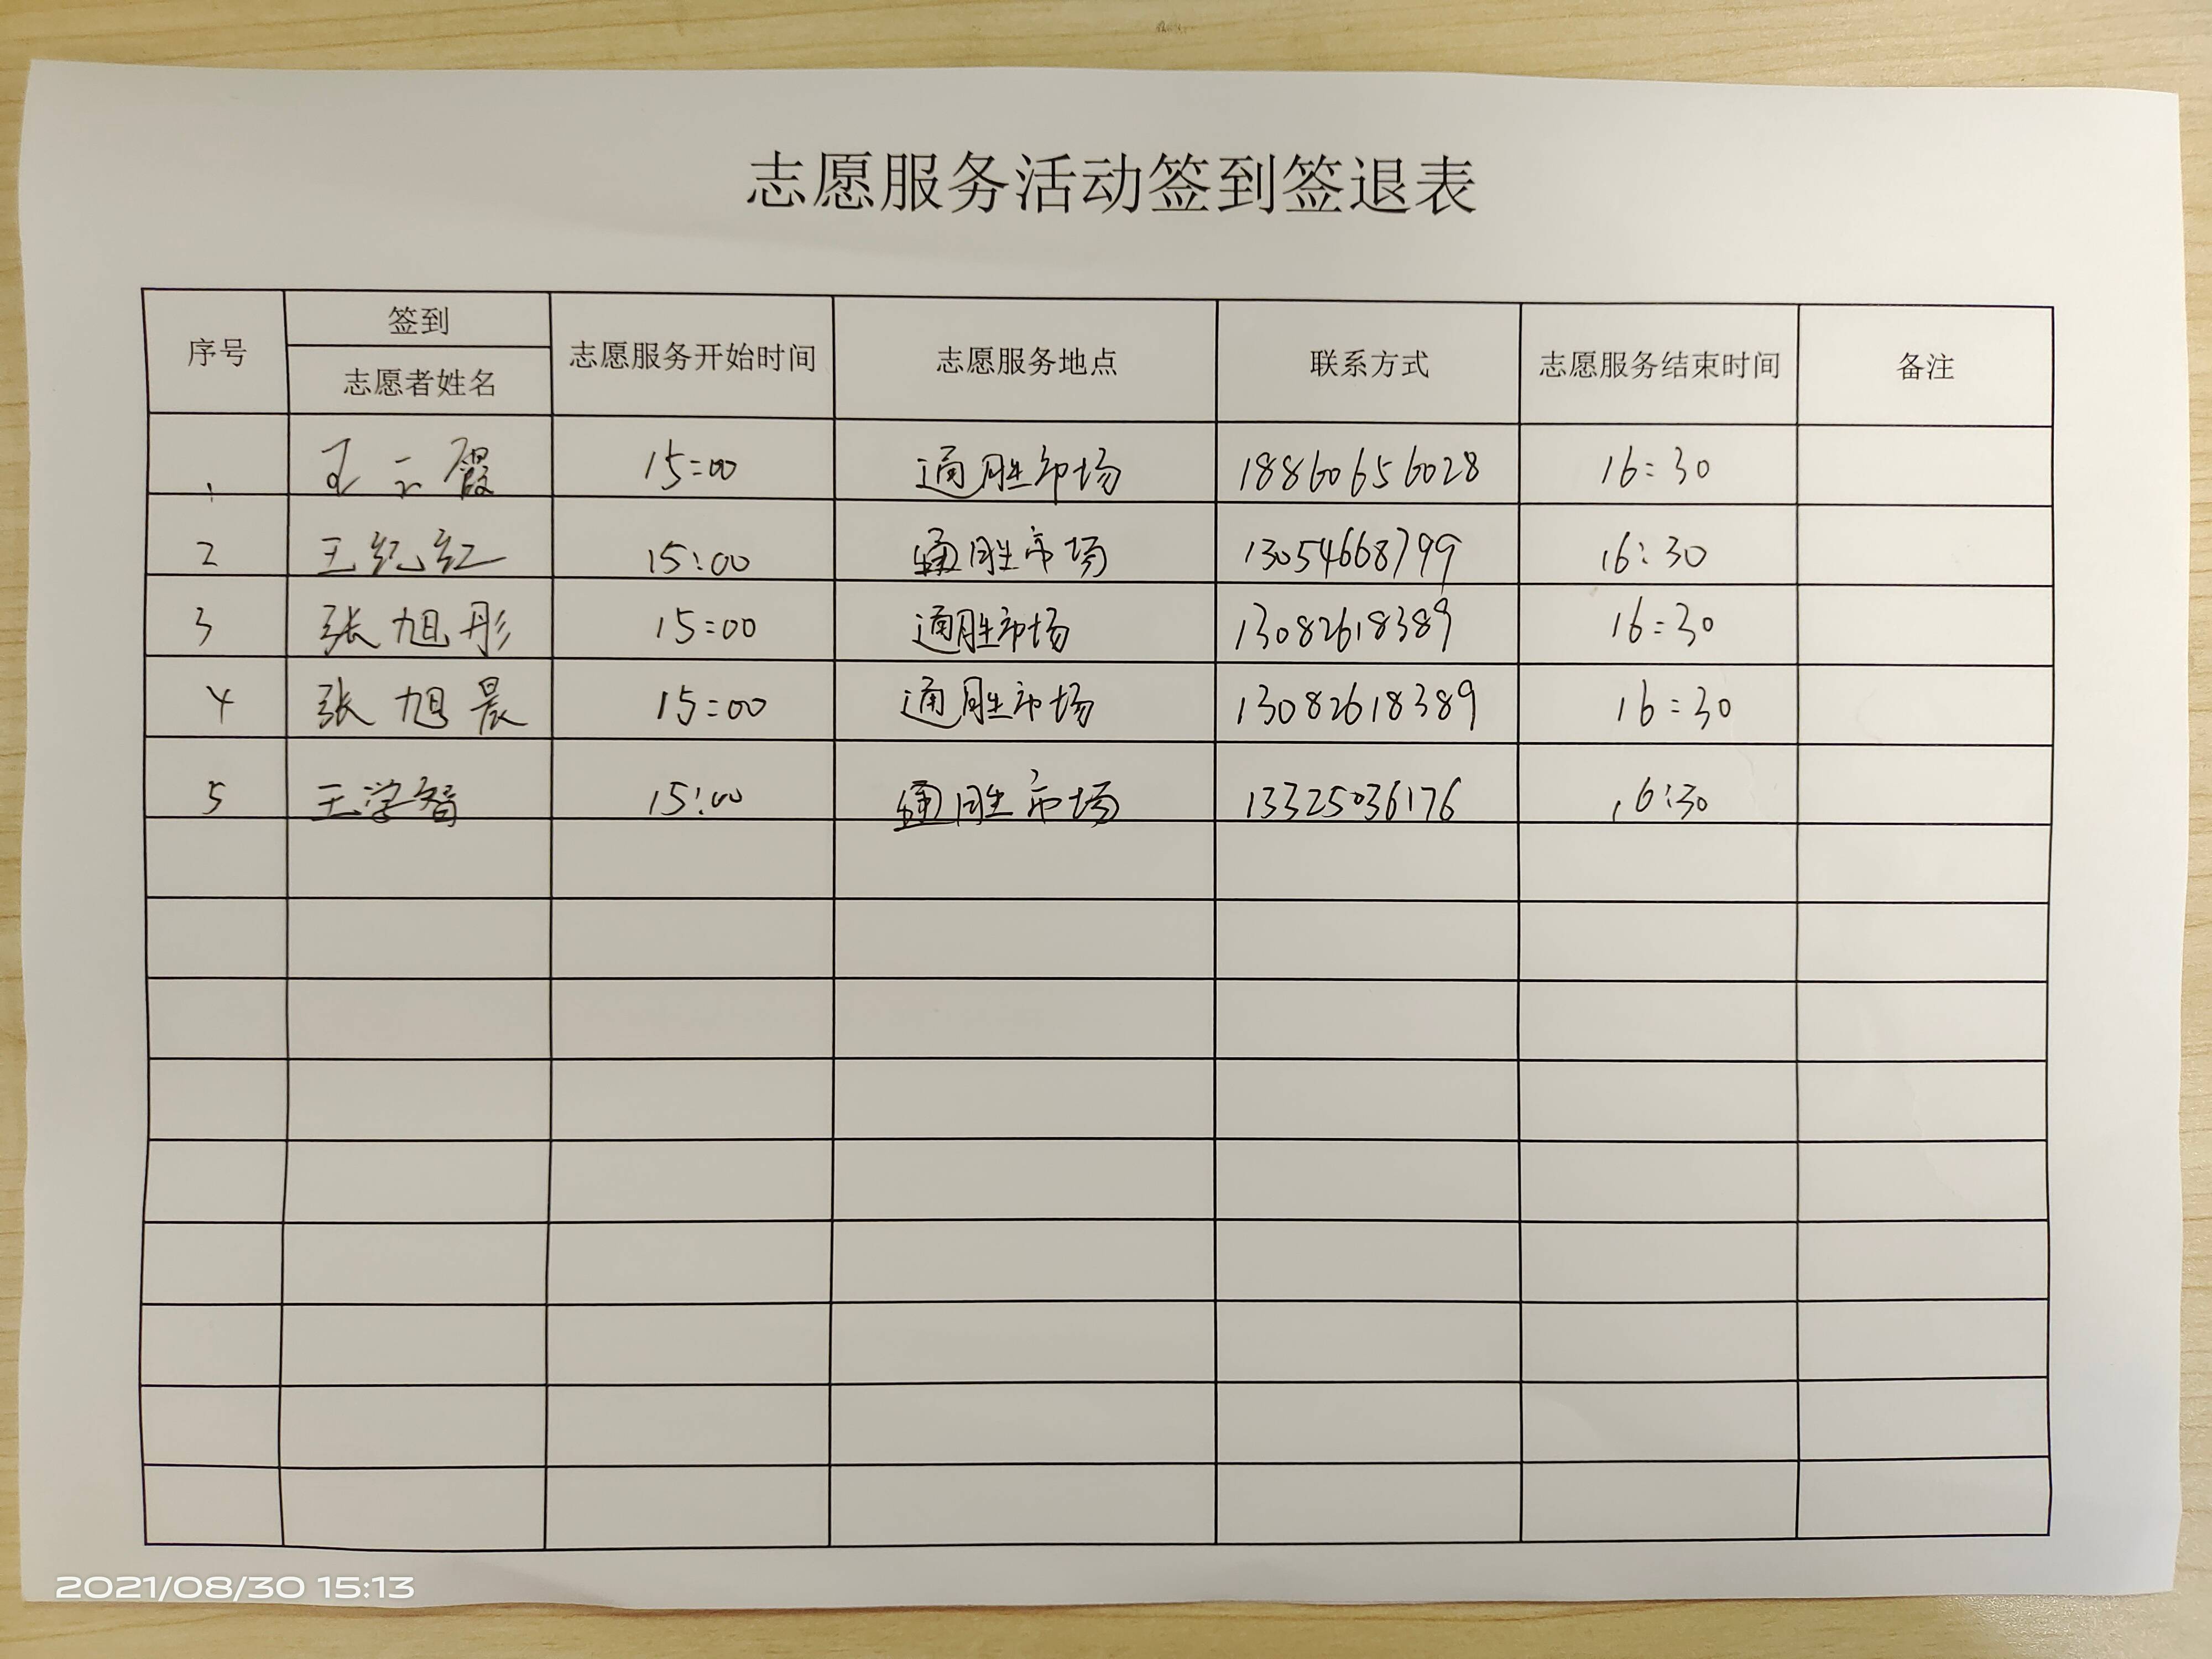 志愿服务活动签到签退表
序号 签到 志愿服务开始时间 志愿服务地点 联系方式 志愿服务结束时间 备注
志愿者姓名
1 王云霞 15:00 通胜市场 18860656028 16:30
2 王纪红 15:00 通胜市场 13054668799 16:30
3 张旭彤 15:00 通胜市场 13082618389 16:30
4 张旭晨 15:00 通胜市场 13082618389 16:30
5 王学智 15:00 通胜市场 13325036176 16:30
2021/08/30 15:13